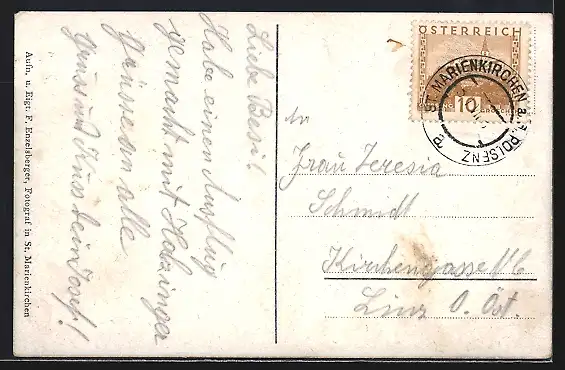 Aufn. u. Eigt. F. Enzelsberger, Fotograf in St. Marienkirchen
Liebe Besi!
Habe einen Ausflug
gemacht mit Holzinger
Grüsse an alle
Gruss und Kuss dein Josef!
ÖSTERREICH
10
ST. MARIENKIRCHEN a. POLSENZ
a
An
Frau Teresia
Schmidt
Kirchengasse 16
Linz O. Öst.